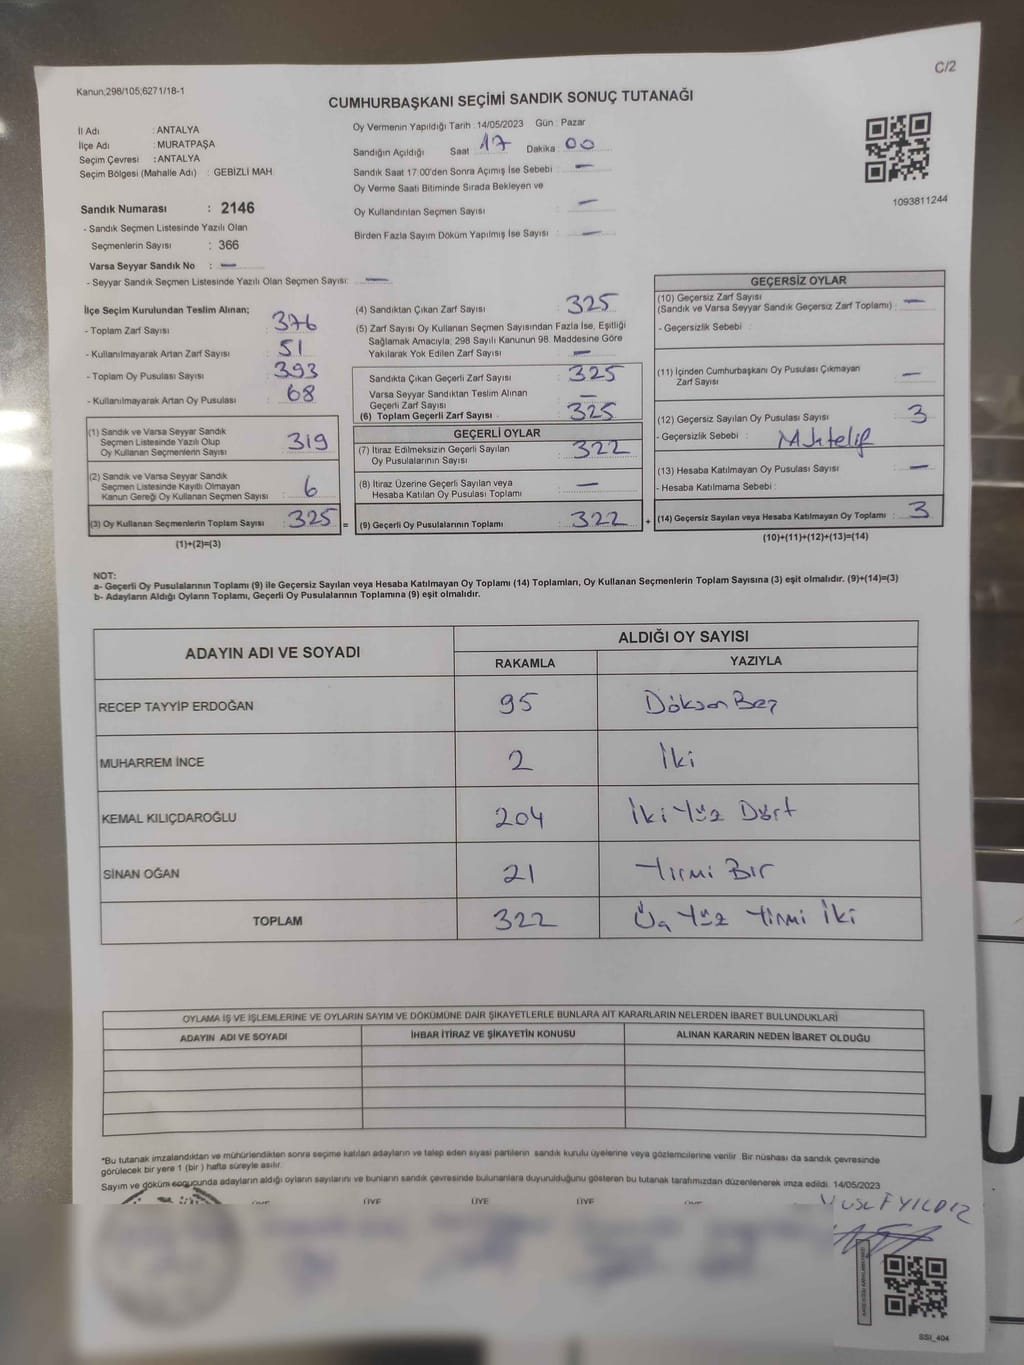 C/2
Kanun;298/105;6271/18-1
CUMHURBAŞKANI SEÇİMİ SANDIK SONUÇ TUTANAĞI
İl Adı : ANTALYA
İlçe Adı : MURATPAŞA
Seçim Çevresi : ANTALYA
Seçim Bölgesi (Mahalle Adı) : GEBİZLİ MAH
Sandık Numarası : 2146
- Sandık Seçmen Listesinde Yazılı Olan
Seçmenlerin Sayısı : 366
Varsa Seyyar Sandık No : —
- Seyyar Sandık Seçmen Listesinde Yazılı Olan Seçmen Sayısı: —
Oy Vermenin Yapıldığı Tarih : 14/05/2023 Gün : Pazar
Sandığın Açıldığı Saat : 17 Dakika : 00
Sandık Saat 17:00'den Sonra Açımış İse Sebebi : —
Oy Verme Saati Bitiminde Sırada Bekleyen ve
Oy Kullandırılan Seçmen Sayısı : —
Birden Fazla Sayım Döküm Yapılmış İse Sayısı : —
1093811244
İlçe Seçim Kurulundan Teslim Alınan;
- Toplam Zarf Sayısı : 376
- Kullanılmayarak Artan Zarf Sayısı : 51
- Toplam Oy Pusulası Sayısı : 393
- Kullanılmayarak Artan Oy Pusulası : 68
(1) Sandık ve Varsa Seyyar Sandık
Seçmen Listesinde Yazılı Olup
Oy Kullanan Seçmenlerin Sayısı : 319
(2) Sandık ve Varsa Seyyar Sandık
Seçmen Listesinde Kayıtlı Olmayan
Kanun Gereği Oy Kullanan Seçmen Sayısı : 6
(3) Oy Kullanan Seçmenlerin Toplam Sayısı : 325 =
(1)+(2)=(3)
(4) Sandıktan Çıkan Zarf Sayısı : 325
(5) Zarf Sayısı Oy Kullanan Seçmen Sayısından Fazla İse, Eşitliği
Sağlamak Amacıyla; 298 Sayılı Kanunun 98. Maddesine Göre
Yakılarak Yok Edilen Zarf Sayısı : —
Sandıkta Çıkan Geçerli Zarf Sayısı : 325
Varsa Seyyar Sandıktan Teslim Alınan
Geçerli Zarf Sayısı : —
(6) Toplam Geçerli Zarf Sayısı : 325
GEÇERLİ OYLAR
(7) İtiraz Edilmeksizin Geçerli Sayılan
Oy Pusulalarının Sayısı : 322
(8) İtiraz Üzerine Geçerli Sayılan veya
Hesaba Katılan Oy Pusulası Toplamı : —
(9) Geçerli Oy Pusulalarının Toplamı : 322 +
GEÇERSİZ OYLAR
(10) Geçersiz Zarf Sayısı
(Sandık ve Varsa Seyyar Sandık Geçersiz Zarf Toplamı) : —
- Geçersizlik Sebebi :
(11) İçinden Cumhurbaşkanı Oy Pusulası Çıkmayan
Zarf Sayısı : —
(12) Geçersiz Sayılan Oy Pusulası Sayısı : 3
- Geçersizlik Sebebi : Muhtelif
(13) Hesaba Katılmayan Oy Pusulası Sayısı : —
- Hesaba Katılmama Sebebi :
(14) Geçersiz Sayılan veya Hesaba Katılmayan Oy Toplamı : 3
(10)+(11)+(12)+(13)=(14)
NOT:
a- Geçerli Oy Pusulalarının Toplamı (9) ile Geçersiz Sayılan veya Hesaba Katılmayan Oy Toplamı (14) Toplamları, Oy Kullanan Seçmenlerin Toplam Sayısına (3) eşit olmalıdır. (9)+(14)=(3)
b- Adayların Aldığı Oyların Toplamı, Geçerli Oy Pusulalarının Toplamına (9) eşit olmalıdır.
ADAYIN ADI VE SOYADI
ALDIĞI OY SAYISI
RAKAMLA YAZIYLA
RECEP TAYYİP ERDOĞAN 95 Doksan Beş
MUHARREM İNCE 2 İki
KEMAL KILIÇDAROĞLU 204 İki Yüz Dört
SİNAN OĞAN 21 Yirmi Bir
TOPLAM 322 Üç Yüz Yirmi İki
OYLAMA İŞ VE İŞLEMLERİNE VE OYLARIN SAYIM VE DÖKÜMÜNE DAİR ŞİKAYETLERLE BUNLARA AİT KARARLARIN NELERDEN İBARET BULUNDUKLARI
ADAYIN ADI VE SOYADI İHBAR İTİRAZ VE ŞİKAYETİN KONUSU ALINAN KARARIN NEDEN İBARET OLDUĞU
*Bu tutanak imzalandıktan ve mühürlendikten sonra seçime katılan adayların ve talep eden siyasi partilerin sandık kurulu üyelerine veya gözlemcilerine verilir. Bir nüshası da sandık çevresinde
görülecek bir yere 1 (bir) hafta süreyle asılır.
Sayım ve döküm sonucunda adayların aldığı oyların sayılarını ve bunların sandık çevresinde bulunanlara duyurulduğunu gösteren bu tutanak tarafımızdan düzenlenerek imza edildi. 14/05/2023
ÜYE ÜYE ÜYE
YUSUF YILDIZ
SSI_404